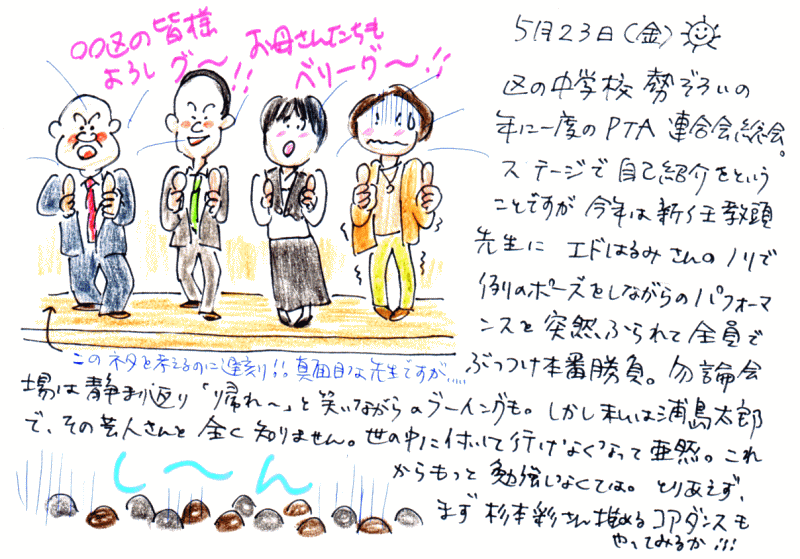 〇〇区の皆様
よろしグ〜!!
お母さんたちも
ベリーグ〜!!
5月23日(金)
区の中学校勢ぞろいの
年に一度のPTA連合会総会。
ステージで自己紹介をという
ことですが今年は新任教頭
先生にエドはるみさんのノリで
例のポーズをしながらのパフォーマ
ンスを突然ふられて全員で
ぶっつけ本番勝負。勿論会
場は静まり返り「帰れ〜」と笑いながらのブーイングも。しかし私は浦島太郎
で、その芸人さんを全く知りません。世の中に付いて行けなくなって亜然。これ
からもっと勉強しなくては。とりあえず、
まず杉本彩さん推めるコアダンスも
やってみるか!!!
このネタを考えるのに遅刻!!真面目な先生ですが……
し〜ん